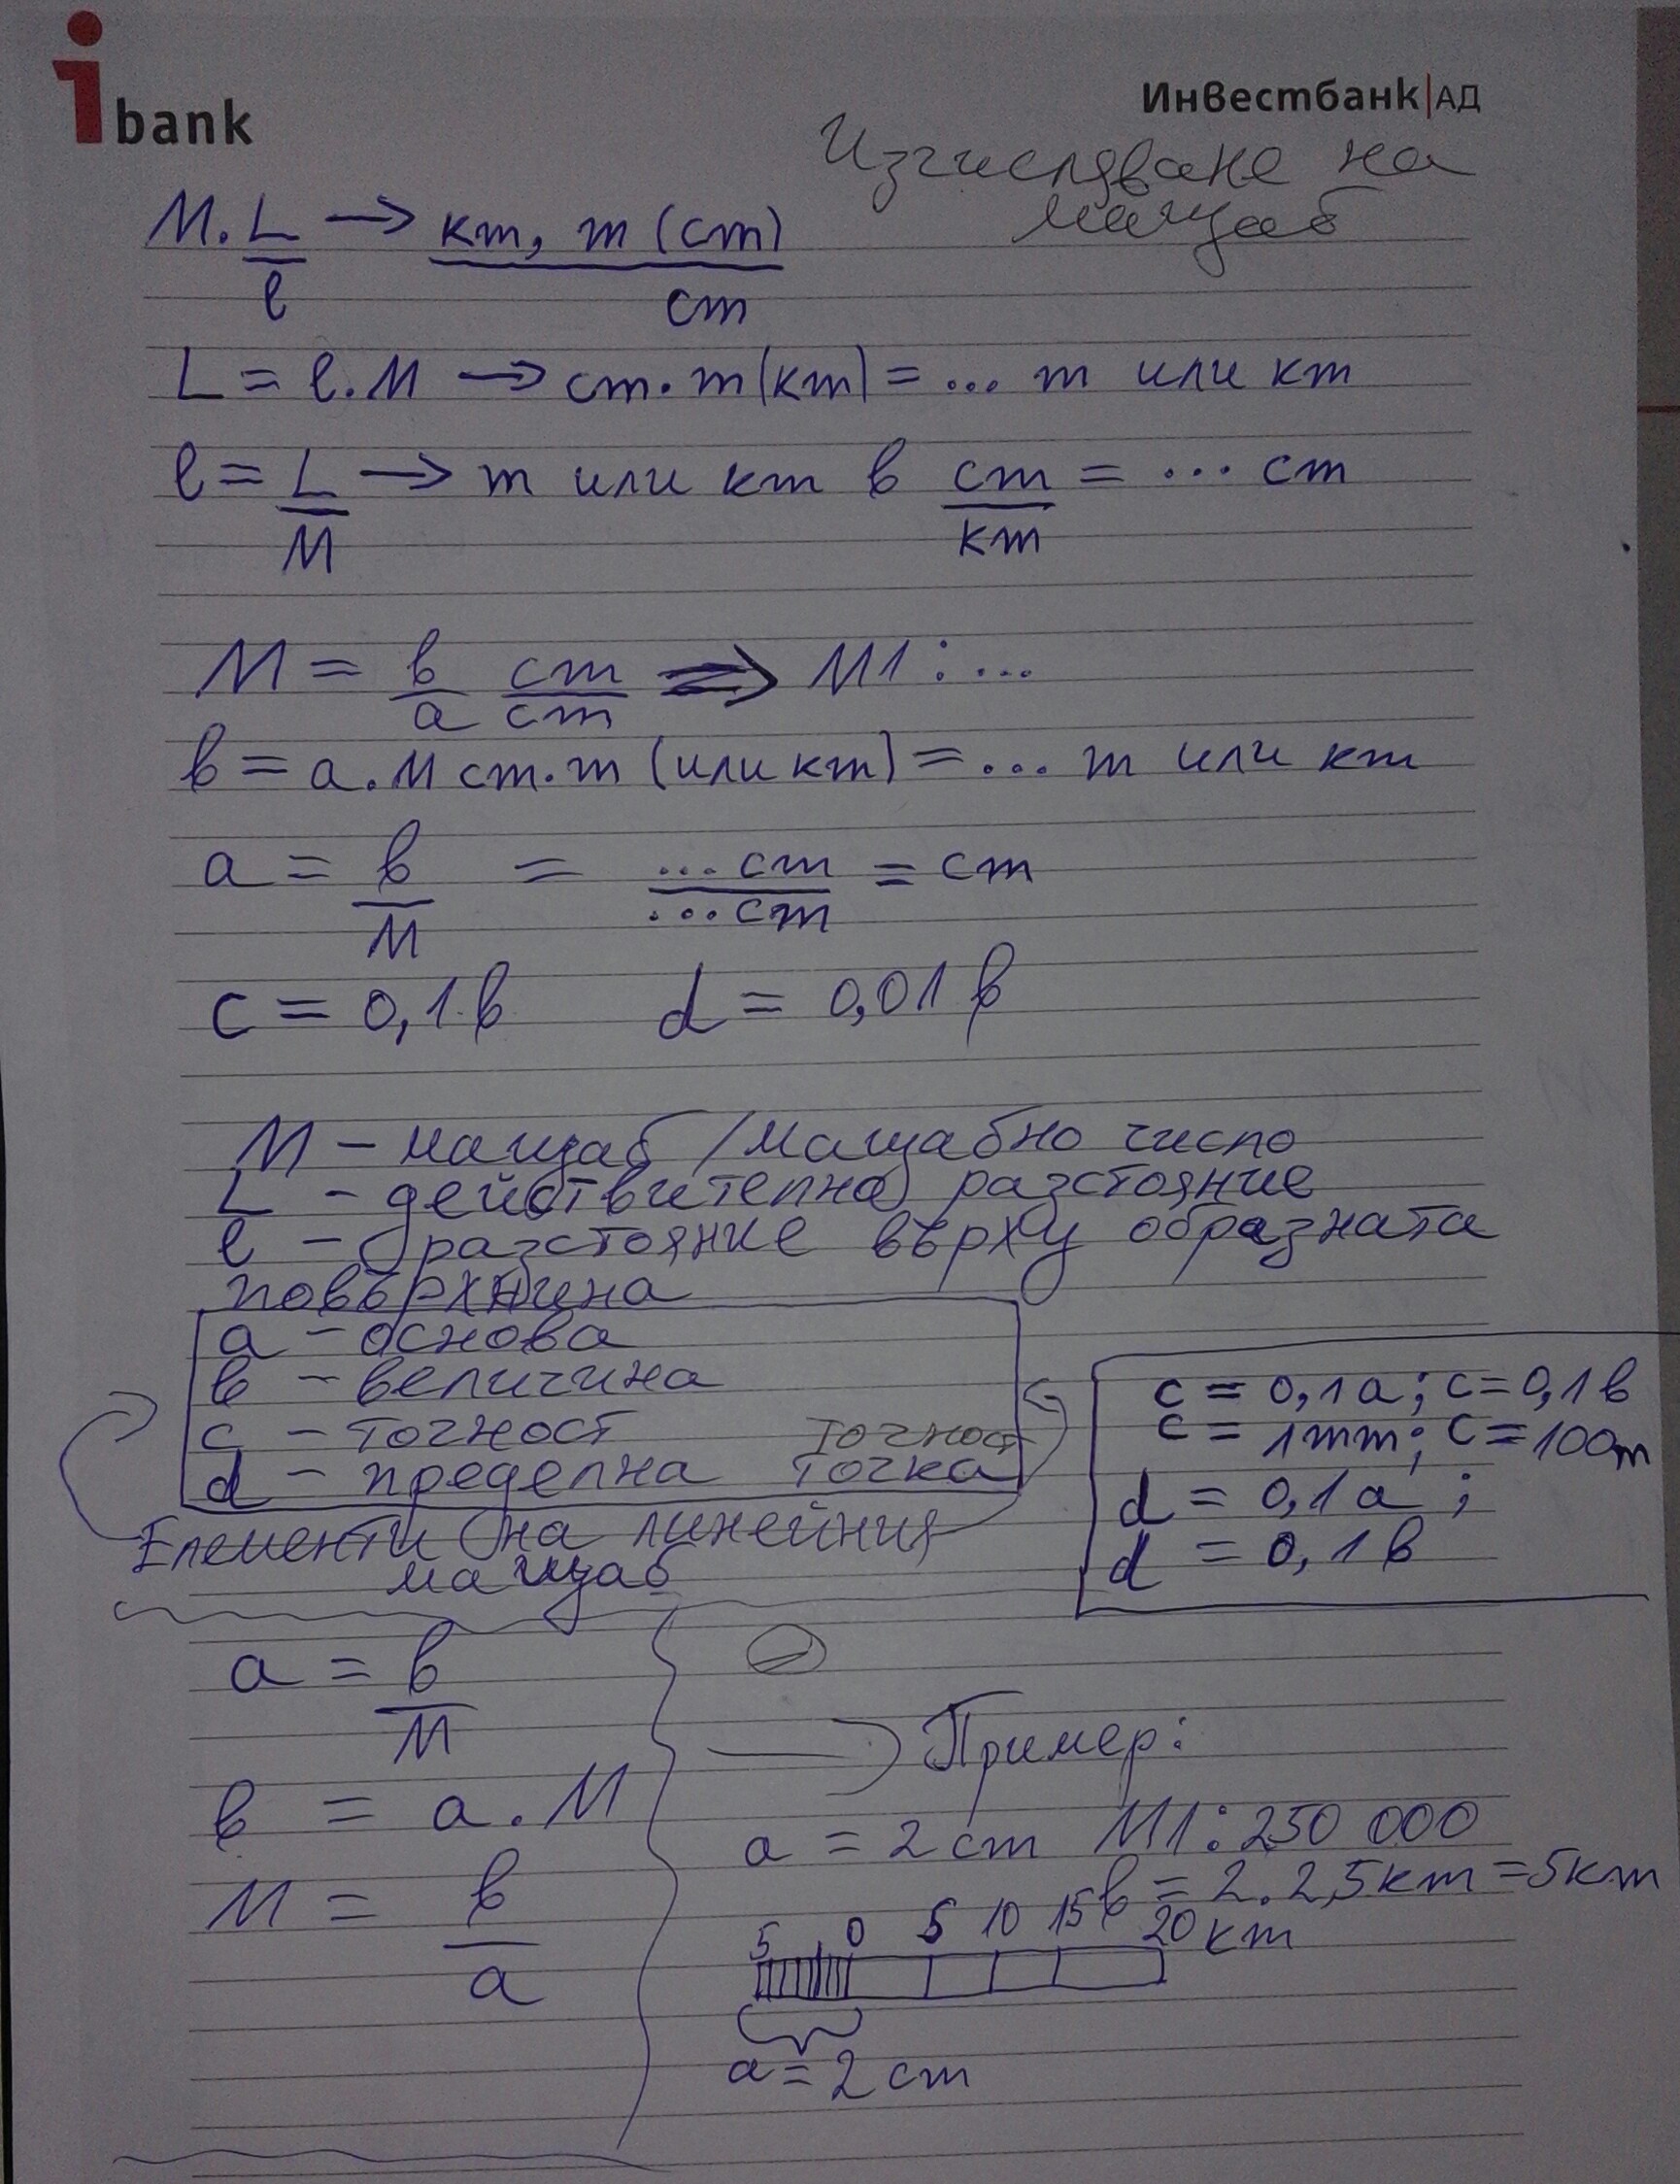 ibank
Инвестбанк|АД
Изчисляване на
мащаб
M. L/l → km, m (cm)/cm
L = l.M → cm.m(km) = ... m или km
l = L/M → m или km в cm/km = ... cm
M = в/a cm/cm ⇒ M1:...
в = a.M cm.m (или km) = ... m или km
a = в/M = ...cm/...cm = cm
c = 0,1в d = 0,01в
M – мащаб / мащабно число
L – действителна разстояние
l – разстояние върху образната
повърхнина
a – основа
в – величина
c – точност
d – пределна точност
точка
Елементи на линейния
мащаб
c = 0,1a; c = 0,1в
c = 1mm; c = 100m
d = 0,1a;
d = 0,1в
a = в/M
в = a.M
M = в/a
Пример:
a = 2cm M1:250 000
в = 2.2,5km = 5km
5 0 5 10 15 20km
a = 2cm